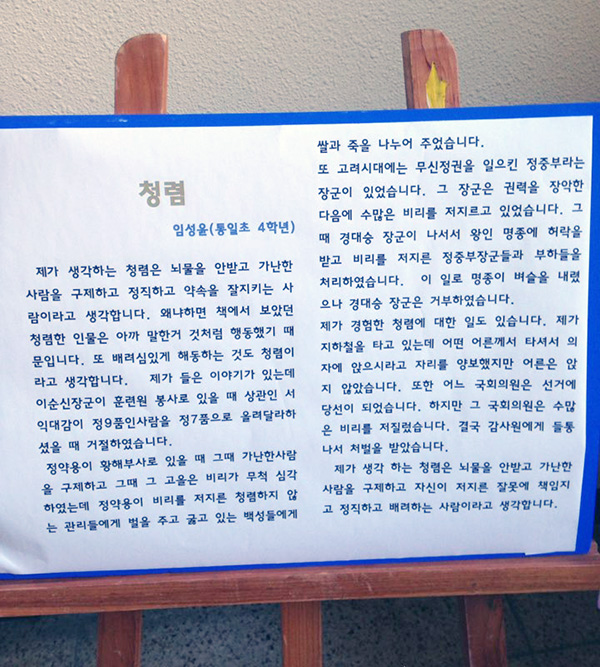 청렴
임성윤(통일초 4학년)
제가 생각하는 청렴은 뇌물을 안받고 가난한
사람을 구제하고 정직하고 약속을 잘지키는 사
람이라고 생각합니다. 왜냐하면 책에서 보았던
청렴한 인물은 아까 말한거 것처럼 행동했기 때
문입니다. 또 배려심있게 해동하는 것도 청렴이
라고 생각합니다. 제가 들은 이야기가 있는데
이순신장군이 훈련원 봉사로 있을 때 상관인 서
익대감이 정9품인사람을 정7품으로 올려달라하
셨을 때 거절하였습니다.
정약용이 황해부사로 있을 때 그때 가난한사람
을 구제하고 그때 그 고을은 비리가 무척 심각
하였는데 정약용이 비리를 저지른 청렴하지 않
는 관리들에게 벌을 주고 굶고 있는 백성들에게
쌀과 죽을 나누어 주었습니다.
또 고려시대에는 무신정권을 일으킨 정중부라는
장군이 있었습니다. 그 장군은 권력을 장악한
다음에 수많은 비리를 저지르고 있었습니다. 그
때 경대승 장군이 나서서 왕인 명종에 허락을
받고 비리를 저지른 정중부장군들과 부하들을
처리하였습니다. 이 일로 명종이 벼슬을 내렸
으나 경대승 장군은 거부하였습니다.
제가 경험한 청렴에 대한 일도 있습니다. 제가
지하철을 타고 있는데 어떤 어른께서 타셔서 의
자에 앉으시라고 자리를 양보했지만 어른은 앉
지 않았습니다. 또한 어느 국회의원은 선거에
당선이 되었습니다. 하지만 그 국회의원은 수많
은 비리를 저질렀습니다. 결국 감사원에게 들통
나서 처벌을 받았습니다.
제가 생각 하는 청렴은 뇌물을 안받고 가난한
사람을 구제하고 자신이 저지른 잘못에 책임지
고 정직하고 배려하는 사람이라고 생각합니다.